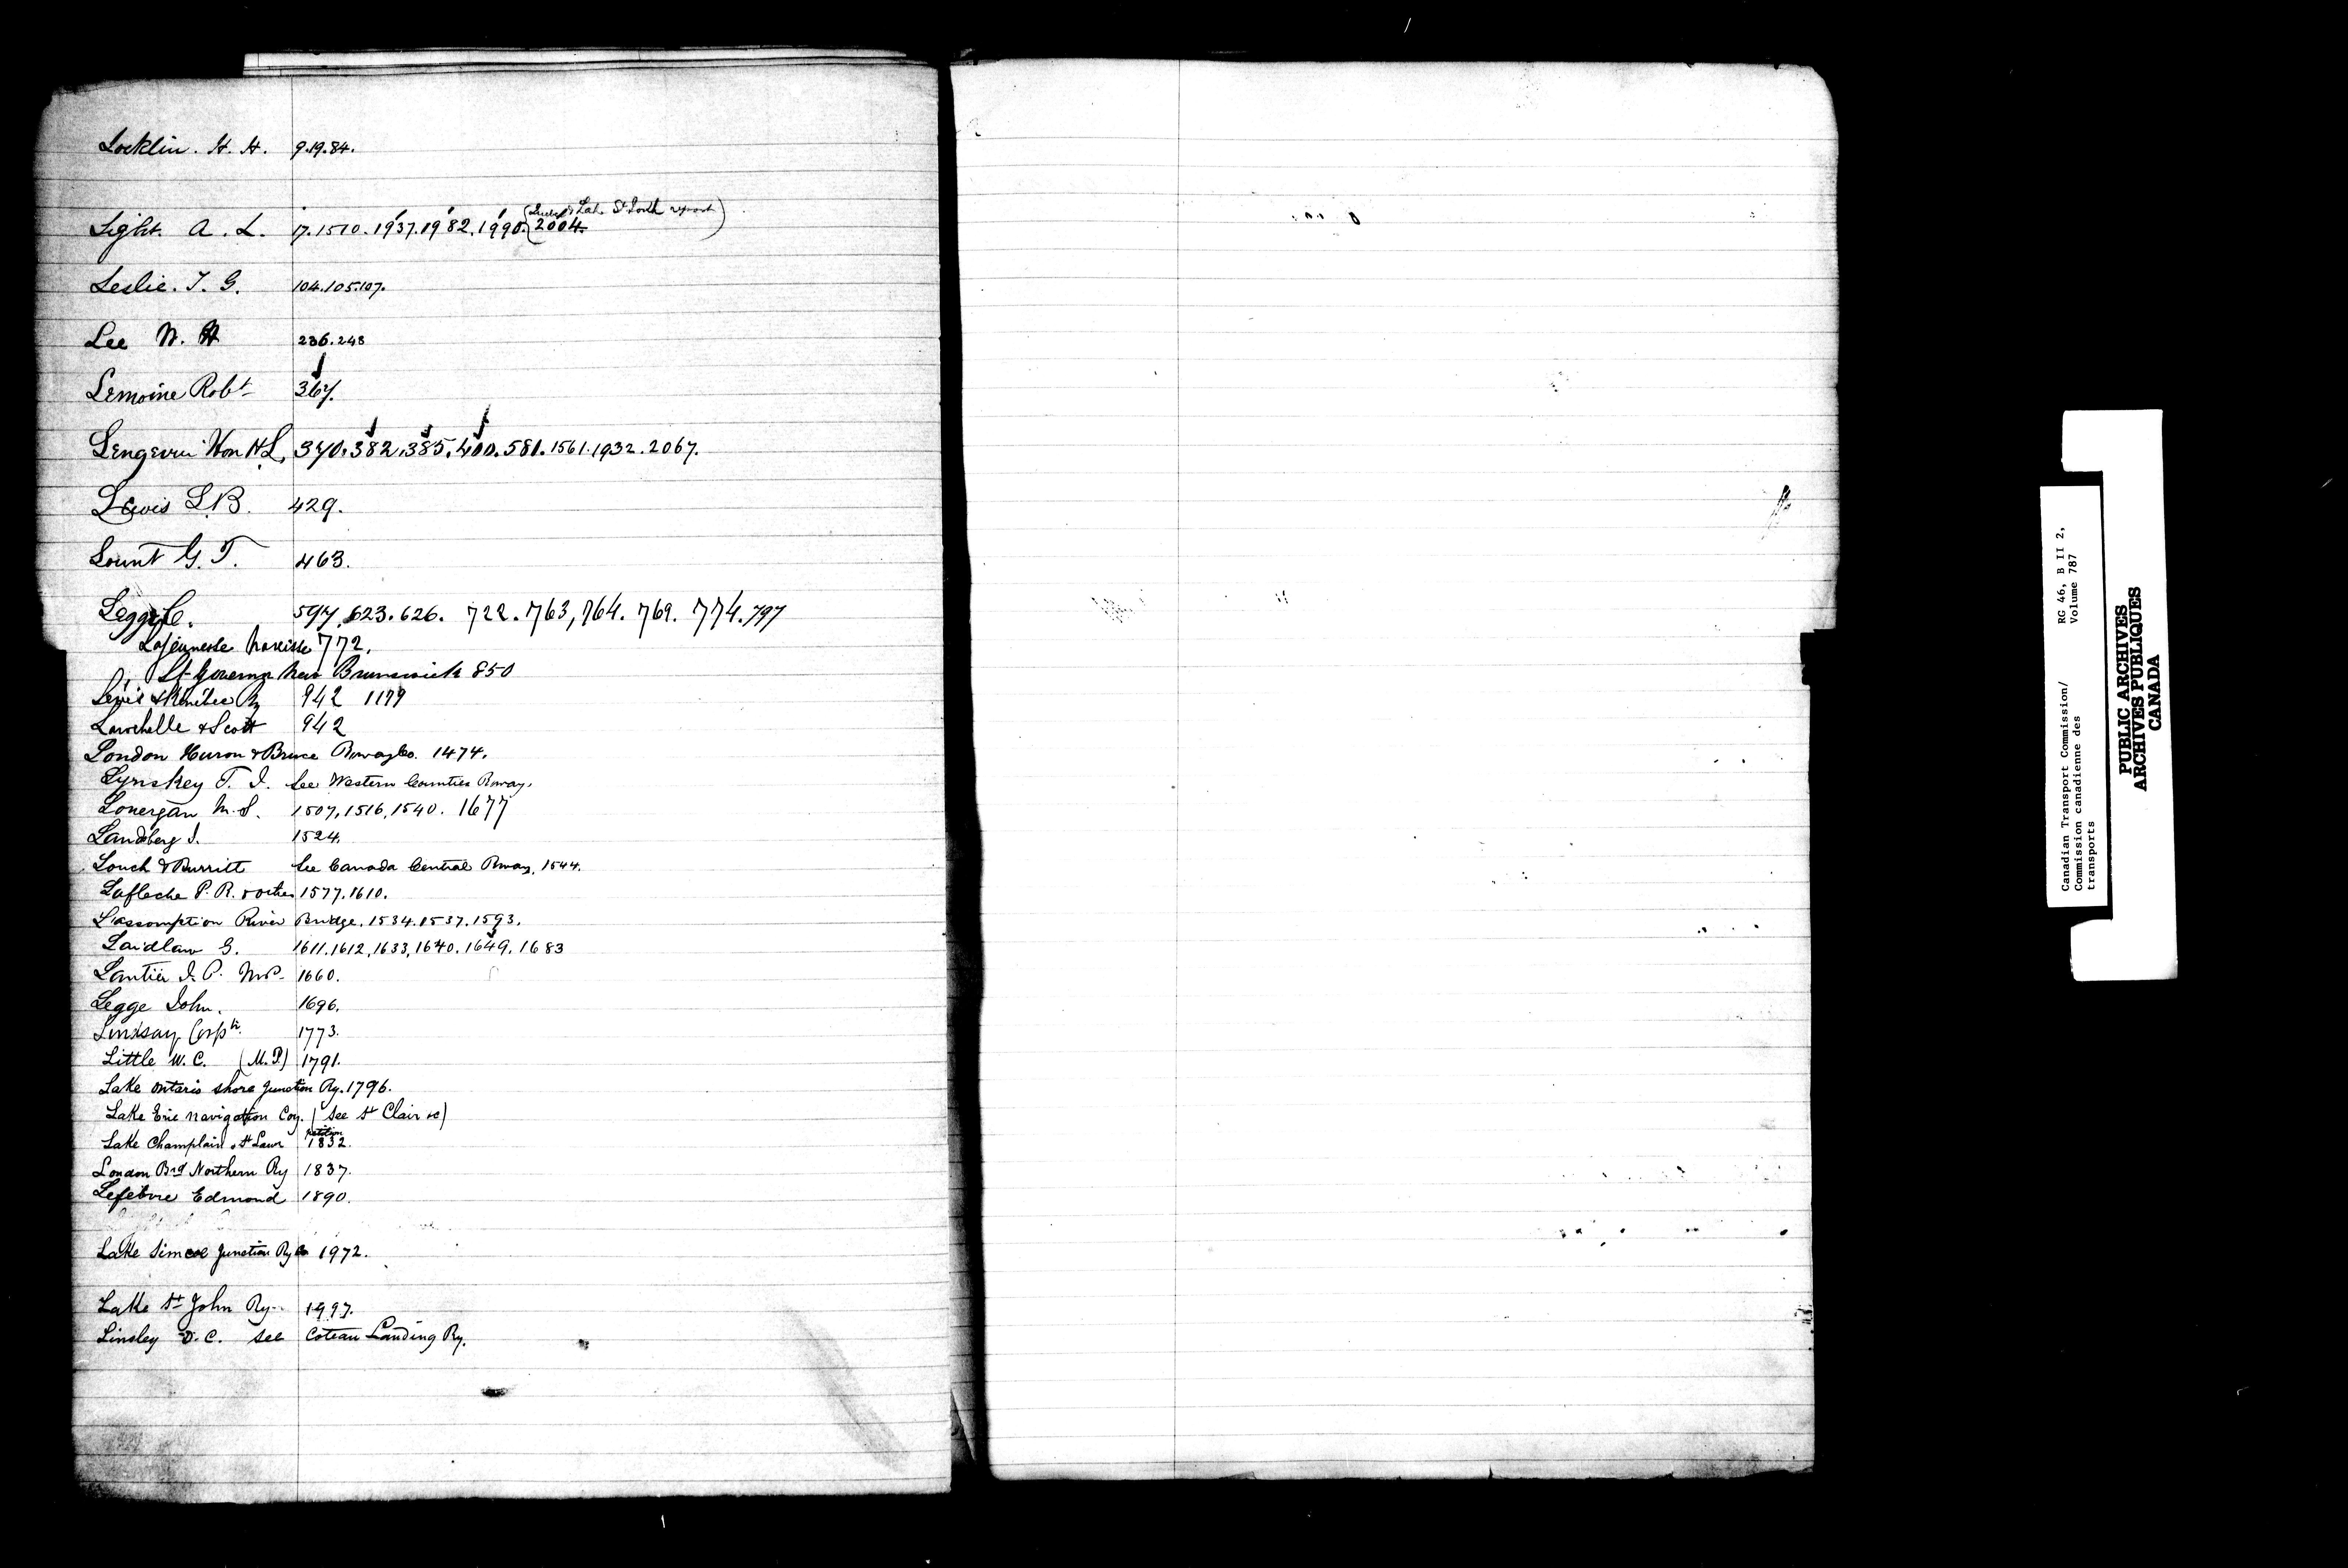 Locklin. H. H. 9.19.84.
Light. A. L. 17.1510.1937.1982.1990. (Lake St John report) 2004.
Leslie. T. G. 104.105.107.
Lee W. H 236.248
Lemoine Robt 367.
Lengevin Hon H L. 370.382.385.400.581.1561.1932.2067.
Lewis L.B. 429.
Lount G. T. 463.
Legge C. 597.623.626. 722.763,764.769.774.797
Lajeunesse Narcisse 772.
Lt Governor New Brunswick 850
Levis & Kenebec Ry 942 1179
Larochelle & Scott 942
London Huron & Bruce Rway Co. 1474.
Lynskey T. J. See Western Counties Rway.
Lonergan M. S. 1507,1516,1540. 1677
Landberg J. 1524.
Louch & Burritt See Canada Central Rway. 1544.
Lafleche P. R. & others 1577.1610.
L'assomption River Bridge. 1534.1537.1593.
Laidlaw G. 1611.1612,1633,1640.1649.1683
Lantier J. P. M.P. 1660.
Legge John. 1696.
Lindsay Corptn. 1773.
Little W. C. (M.P.) 1791.
Lake Ontario shore Junction Ry. 1796.
Lake Erie Navigation Coy. (See St Clair &c)
Lake Champlain & St Lawr petition 1832.
London Brd Northern Ry 1837.
Lefebvre Edmond 1890.
Lake Simcoe Junction Ry Co 1972.
Lake St John Ry. 1997.
Linsley D. C. see Coteau Landing Ry.
Canadian Transport Commission/ RG 46, B II 2,
Commission canadienne des Volume 787
transports
PUBLIC ARCHIVES
ARCHIVES PUBLIQUES
CANADA